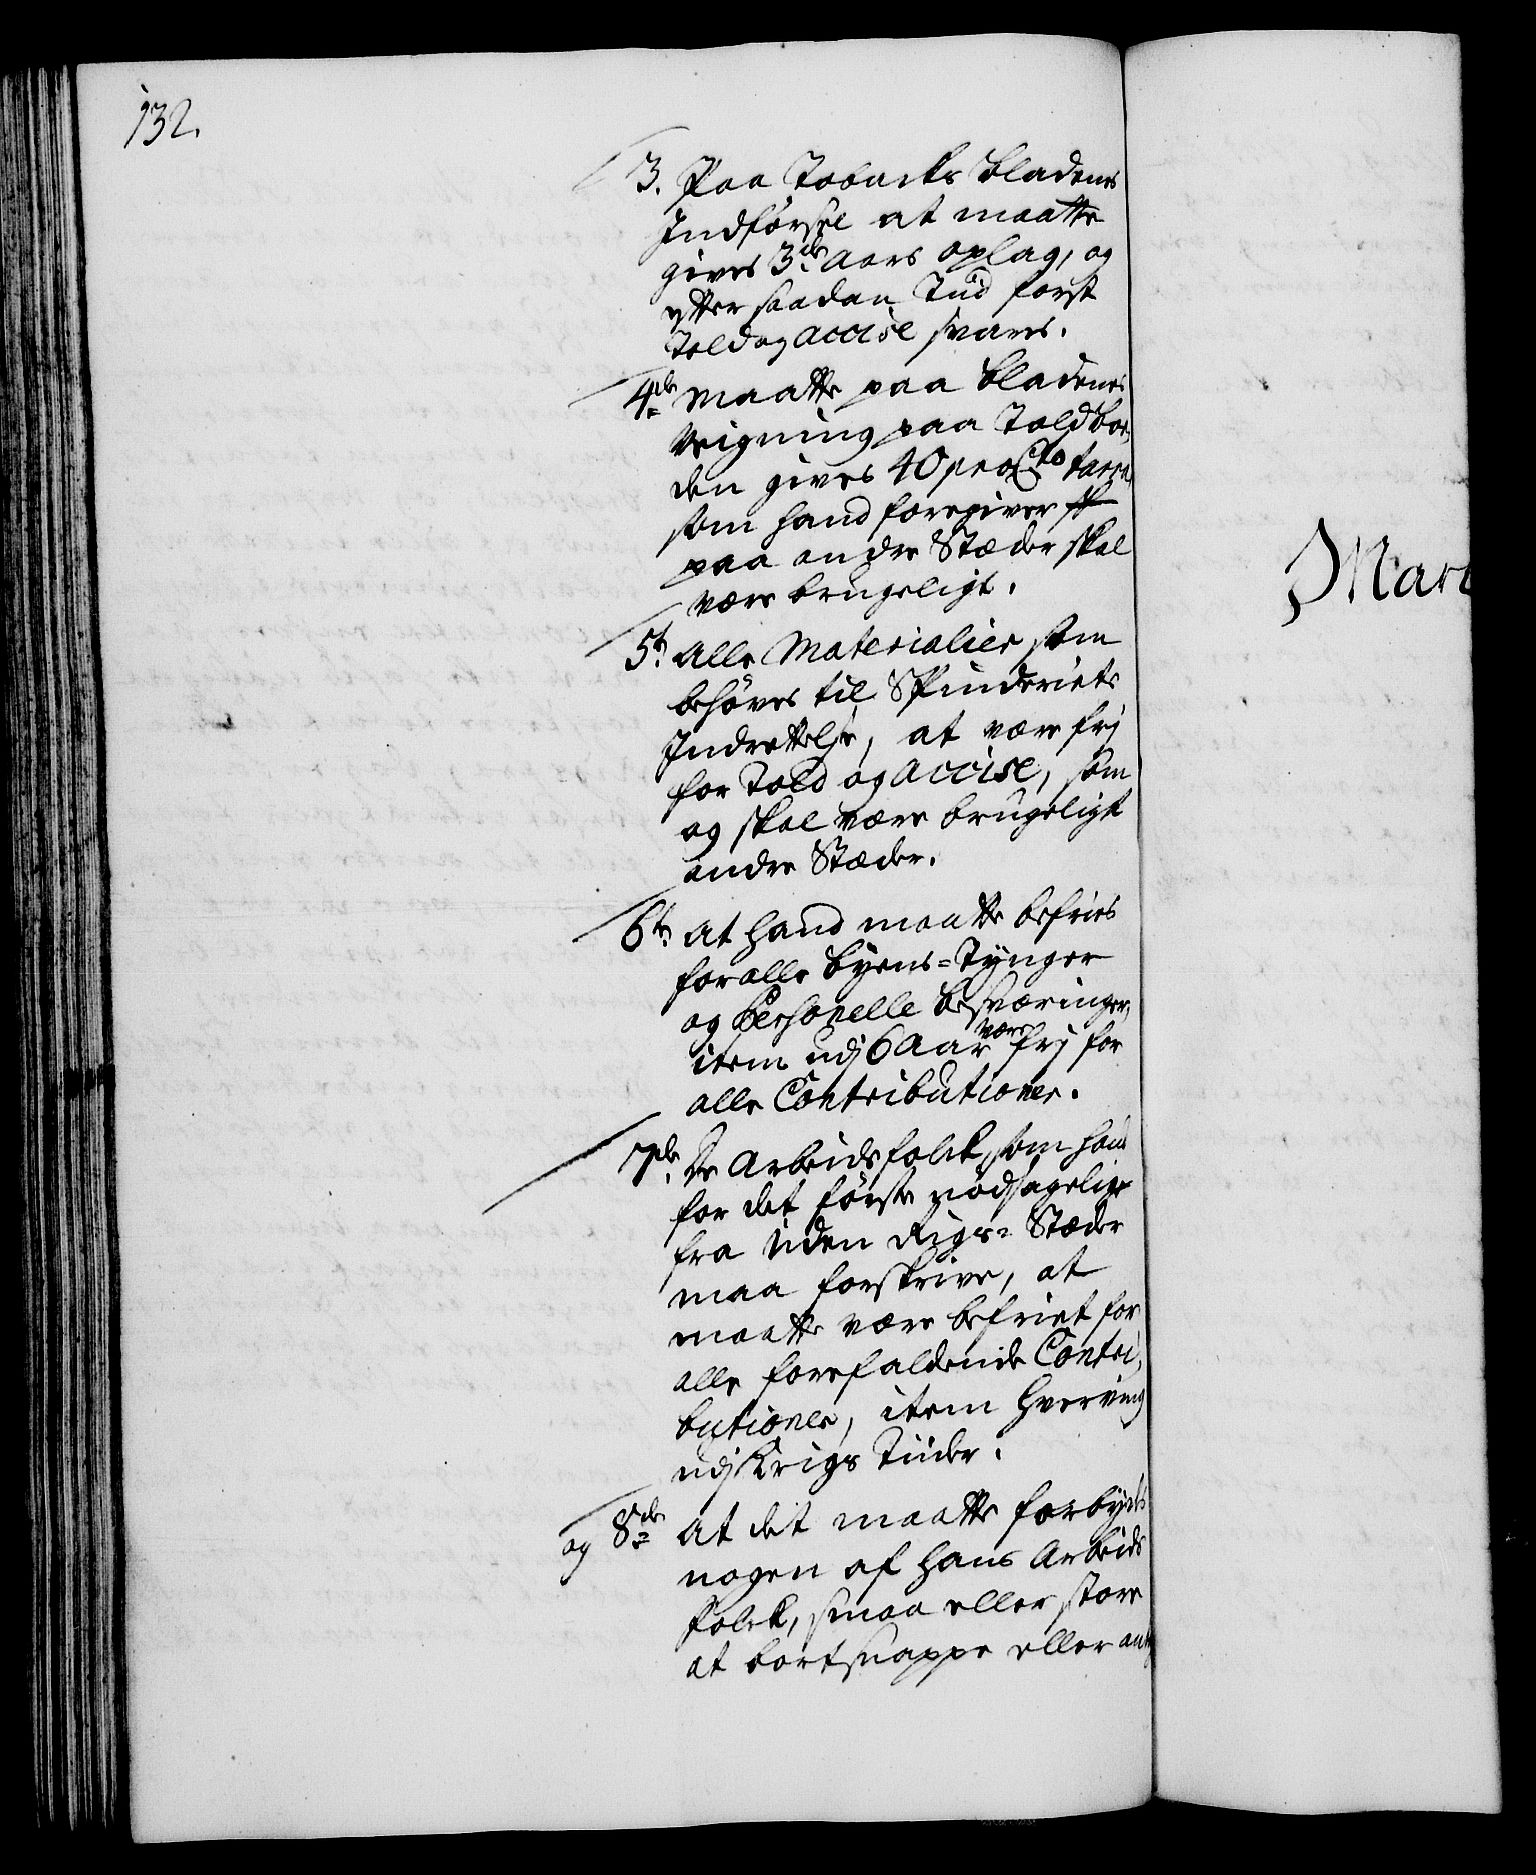 132.
3. Paa Tobacks Bladenes
Indförsel at maatte
gives 3de Aars oplag, og
efter saadan Tiid först
Told og Accise svares.
4de Maatte paa Bladenes
Veigning paa Toldboe,
den gives 40 pro Cto tarra
som hand foregiver
paa andre Stæder skal
være brugeligt.
5te Alle Materialier som
behöves til Spinderiets
Indrettelse, at være frj
for Told og Accise, som
og skal være brugeligt
andre Stæder.
6te At hand maatte befries
for alle Byens-Tynger
og Personelle besværinger,
item udj 6 Aar være frj for
alle Contributioner.
7de De Arbeidsfolck, som hand
for det förste nödsagelige
fra uden Rigs-Stæder
maa forskrive, at
maatte være befriet for
alle forefaldende Contri,
butioner, item Hverving
udj Krigs Tiider.
og 8de At det maatte forbydes
nogen af hans Arbeids
folck, smaa eller store
at bortsnappe eller an
Mart